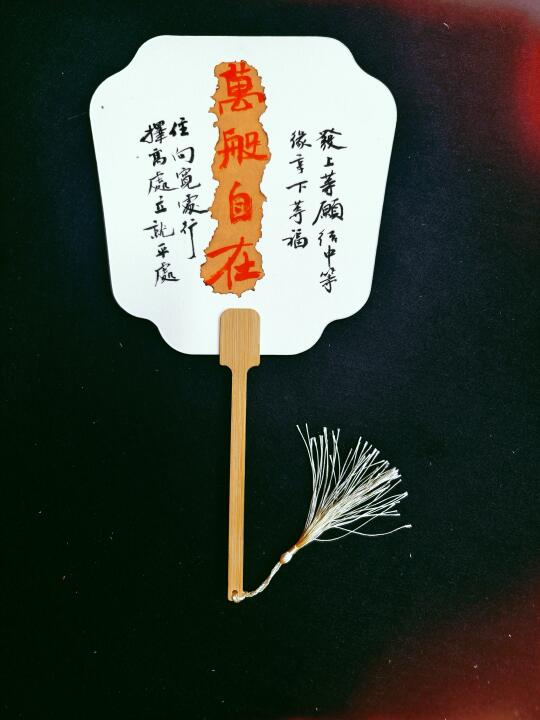 發上等願結中等
緣享下等福
萬般自在
擇高處立就平處
住向寬處行